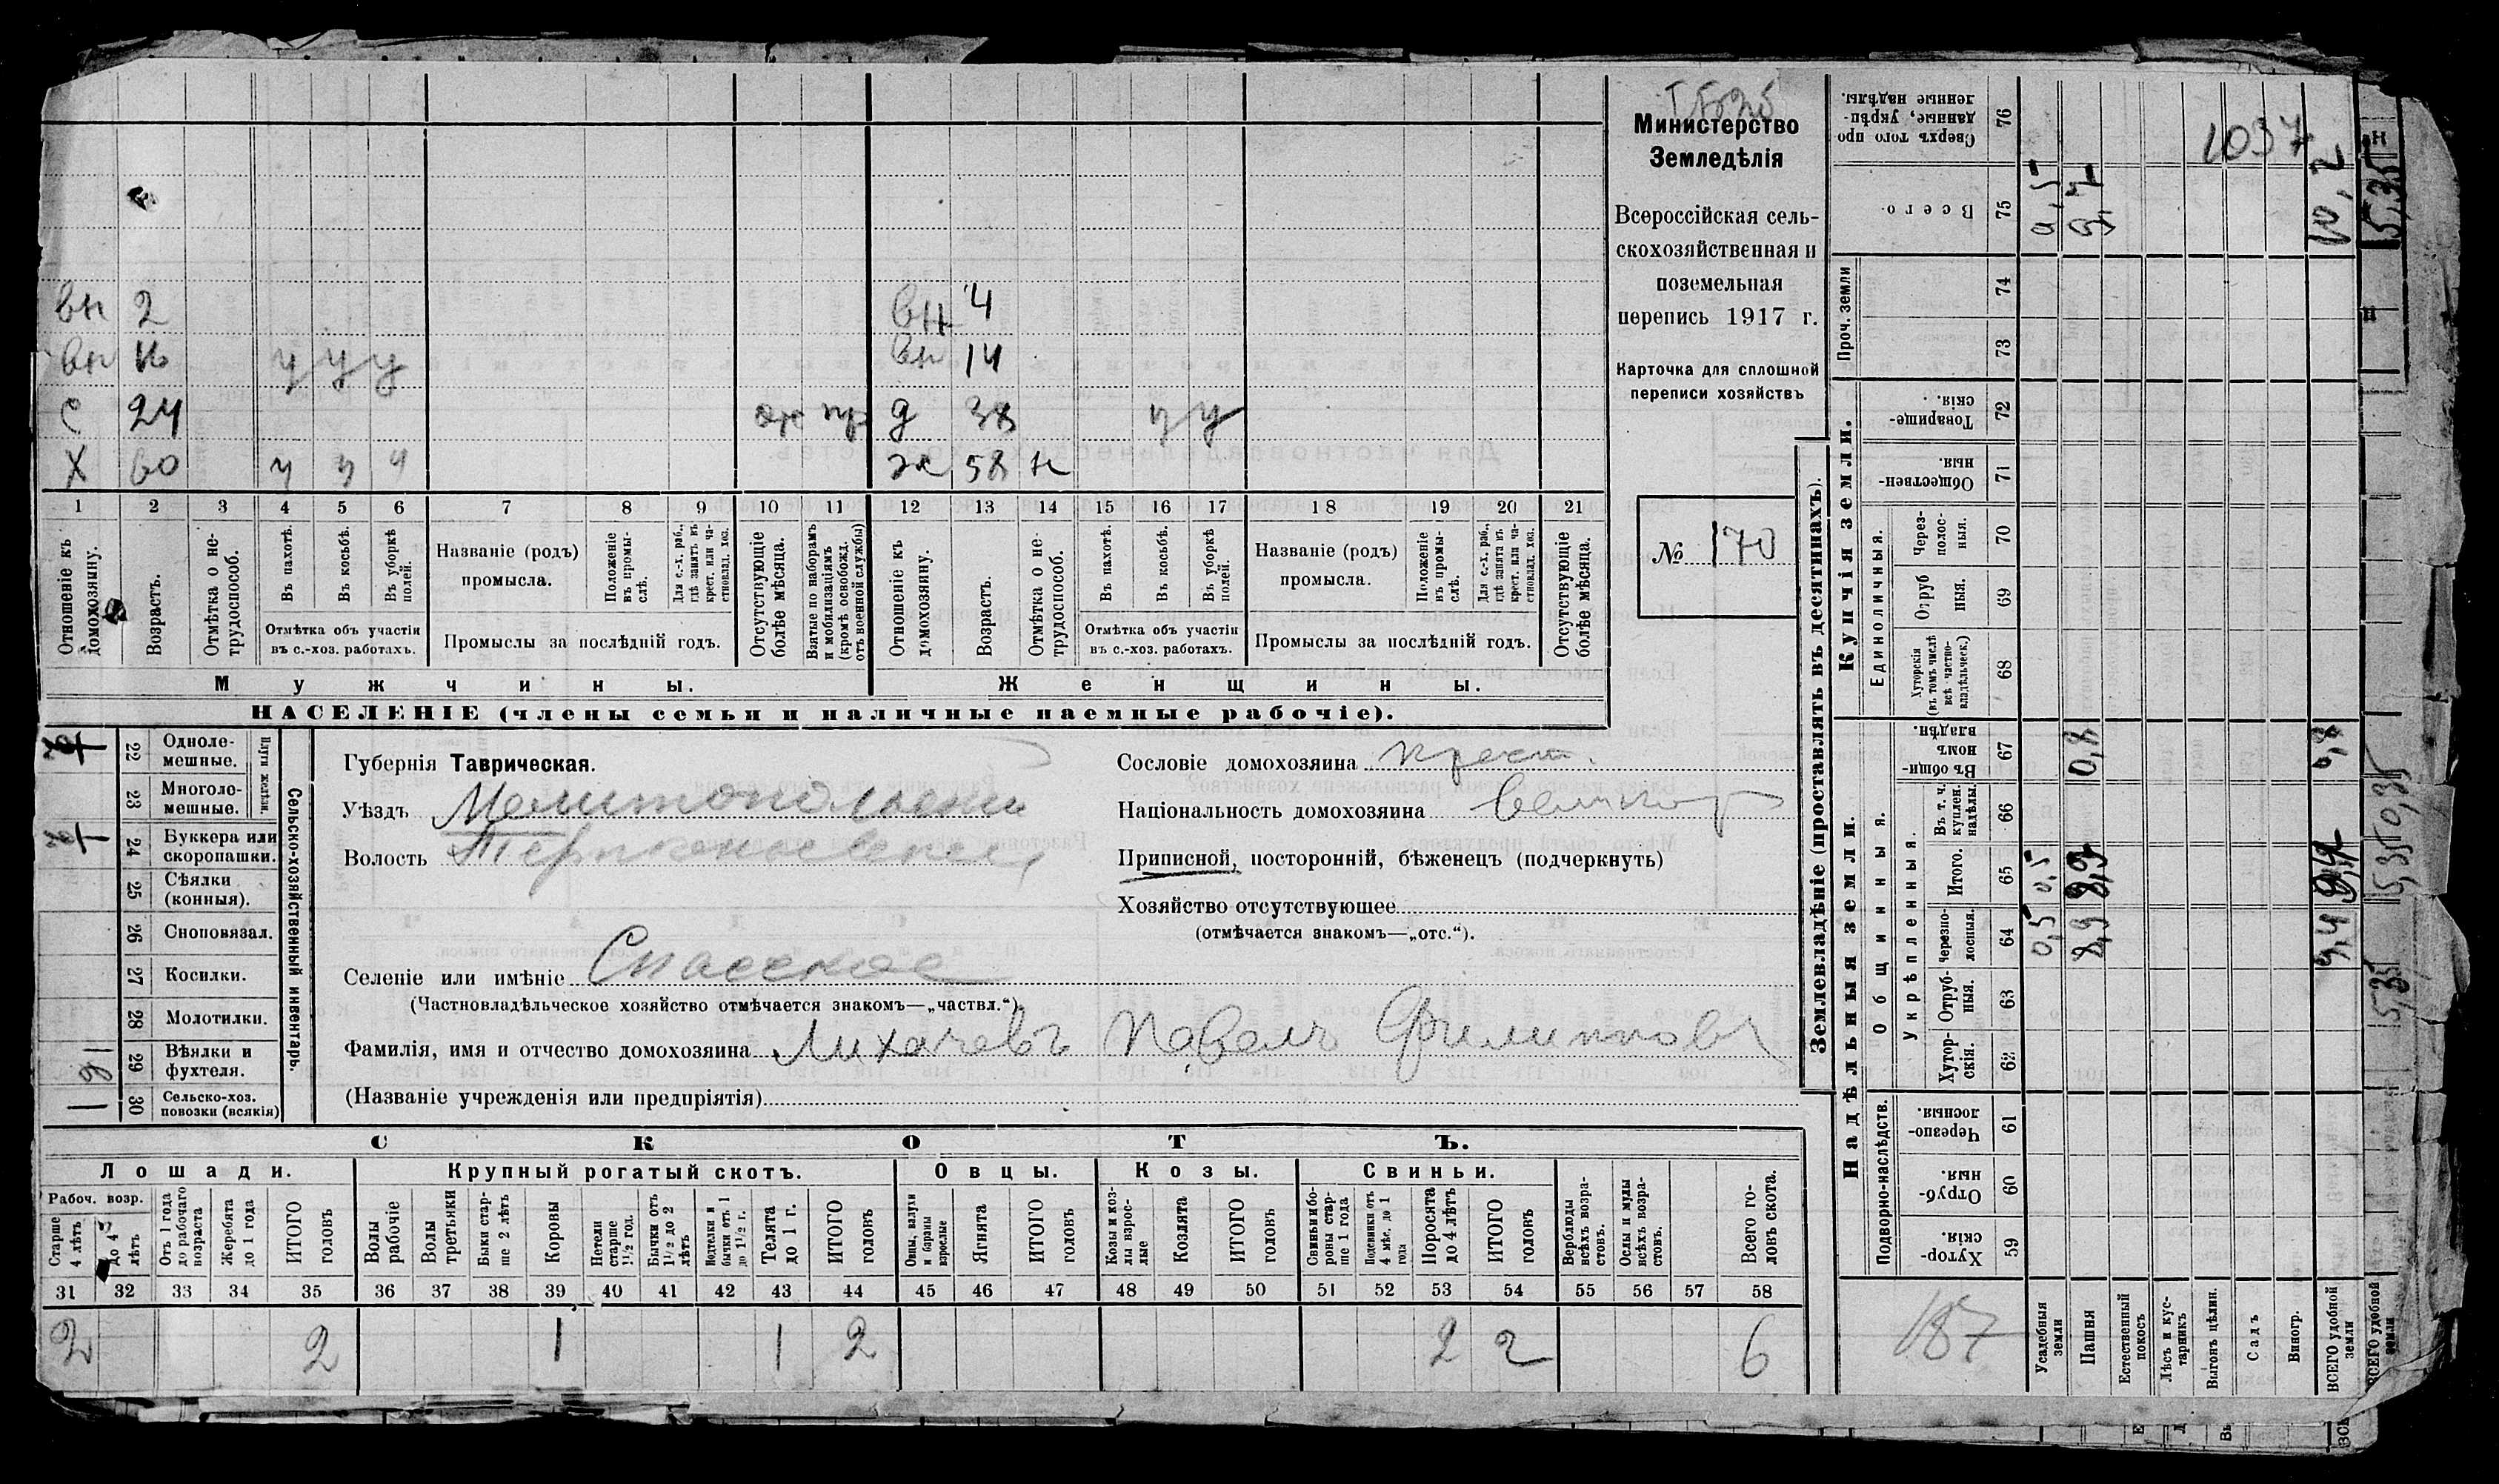 Министерство
Земледѣлія
Всероссійская сель-
скохозяйственная и
поземельная
перепись 1917 г.
Карточка для сплошной
переписи хозяйствъ
№ 170
вн 2 вн 4
вн у у у вн 14
с 24 д 38 у у
х 60 у у у ж 58 н
1 2 3 4 5 6 7 8 9 10 11 12 13 14 15 16 17 18 19 20 21
Отношеніе къ домохозяину.
Возрастъ.
Отмѣтка о не-трудоспособ.
Въ пахотѣ.
Въ косьбѣ.
Въ уборкѣ полей.
Отмѣтка объ участіи
въ с.-хоз. работахъ.
Названіе (родъ)
промысла.
Положеніе въ промы-слѣ.
Для с.-х. раб., гдѣ занятъ въ крест. или ча-стновлад. хоз.
Промыслы за послѣдній годъ.
Отсутствующіе болѣе мѣсяца.
Взятые по наборамъ и мобилизаціямъ (кромѣ освобожд. отъ военной службы)
Отношеніе къ домохозяину.
Возрастъ.
Отмѣтка о не-трудоспособ.
Въ пахотѣ.
Въ косьбѣ.
Въ уборкѣ полей.
Отмѣтка объ участіи
въ с.-хоз. работахъ.
Названіе (родъ)
промысла.
Положеніе въ промы-слѣ.
Для с.-х. раб., гдѣ занята въ крест. или ча-стновлад. хоз.
Промыслы за послѣдній годъ.
Отсутствующіе болѣе мѣсяца.
Мужчины. Женщины.
НАСЕЛЕНІЕ (члены семьи и наличные наемные рабочіе).
22 Одноле-мешные.
23 Многоле-мешные.
Плуги желѣзн.
24 Буккера или скоропашки.
25 Сѣялки (конныя).
26 Сноповязал.
27 Косилки.
28 Молотилки.
29 Вѣялки и фухтеля.
1 30 Сельско-хоз. повозки (всякія)
Сельско-хозяйственный инвентарь.
Губернія Таврическая.
Уѣздъ Мелитопольский
Волость
Селеніе или имѣніе Спасское
(Частновладѣльческое хозяйство отмѣчается знакомъ—„частвл.“)
Фамилія, имя и отчество домохозяина Лихачевъ Павелъ Филипповъ
(Названіе учрежденія или предпріятія)
Сословіе домохозяина крест.
Національность домохозяина великор
Приписной, посторонній, бѣженецъ (подчеркнуть)
Хозяйство отсутствующее
(отмѣчается знакомъ—„отс.“).
СКОТЪ.
Лошади. Крупный рогатый скотъ. Овцы. Козы. Свиньи.
Рабоч. возр.
Старше 4 лѣтъ
До 4 лѣтъ
Отъ 1 года до рабочаго возраста
Жеребята до 1 года
ИТОГО головъ
Волы рабочіе
Волы третьяки
Быки стар-ше 2 лѣтъ
Коровы
Нетели старше 1½ год.
Бычки отъ 1½ до 2 лѣтъ
Подтелки и бычки отъ 1 до 1½ г.
Телята до 1 г.
ИТОГО головъ
Овцы, валухи и бараны взрослые
Ягнята
ИТОГО головъ
Козы и коз-лы взрос-лые
Козлята
ИТОГО головъ
Свиньи и бо-ровы стар-ше 1 года
Подсвинки отъ 4 мѣс. до 1 года
Поросята до 4 лѣтъ
ИТОГО головъ
Верблюды всѣхъ возра-стовъ.
Ослы и мулы всѣхъ возра-стовъ.
Всего го-ловъ скота.
31 32 33 34 35 36 37 38 39 40 41 42 43 44 45 46 47 48 49 50 51 52 53 54 55 56 57 58
2 2 1 1 2 2 2 6
Землевладѣніе (проставлять въ десятинахъ).
Купчія земли.
Надѣльныя земли.
Сверхъ того про-данные, укрѣп-ленные надѣлы. 76
Всего. 75
Проч. земли 74 73
Товарище-скія. 72
Обществен-ныя. 71
Единоличныя.
Через-полос-ныя. 70
Отруб ныя. 69
Хуторскія (въ томъ числѣ всѣ частно-владѣльческ.) 68
Общинныя.
Въ общи-номъ владѣн. 67
Укрѣпленныя.
Въ т. ч. куплен. надѣлы. 66
Итого. 65
Черезпо-лосныя. 64
Отруб-ныя. 63
Хутор-скія. 62
Подворно-наслѣдств.
Черезпо-лосныя. 61
Отруб-ныя. 60
Хутор-скія. 59
187
Усадебныя земли 0,5 0,5
Пашня 8,9 0,8
Естественный покосъ
Лѣсъ и кус-тарникъ
Выгонъ цѣлин.
Садъ
Виногр.
ВСЕГО удобной земли 9,4 10,2
ВСЕГО удобной земли 5,35 5,35 0,35 5,35
1037